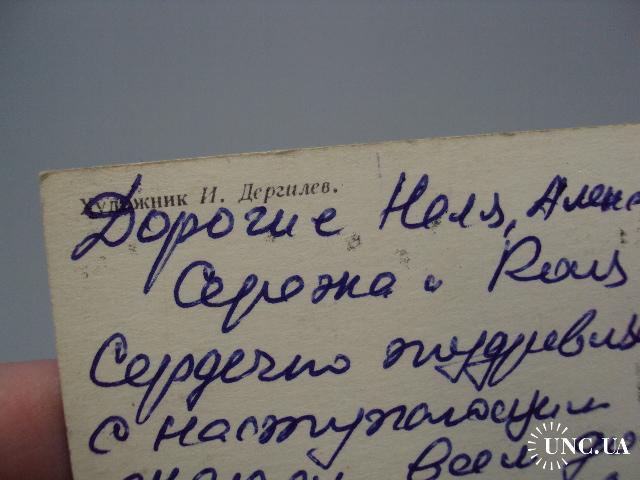 Художник И. Дергилев.
Дорогие Неля, Алекс
Сережа и
Сердечно поздравля
с наступающим
всем
UNC.UA